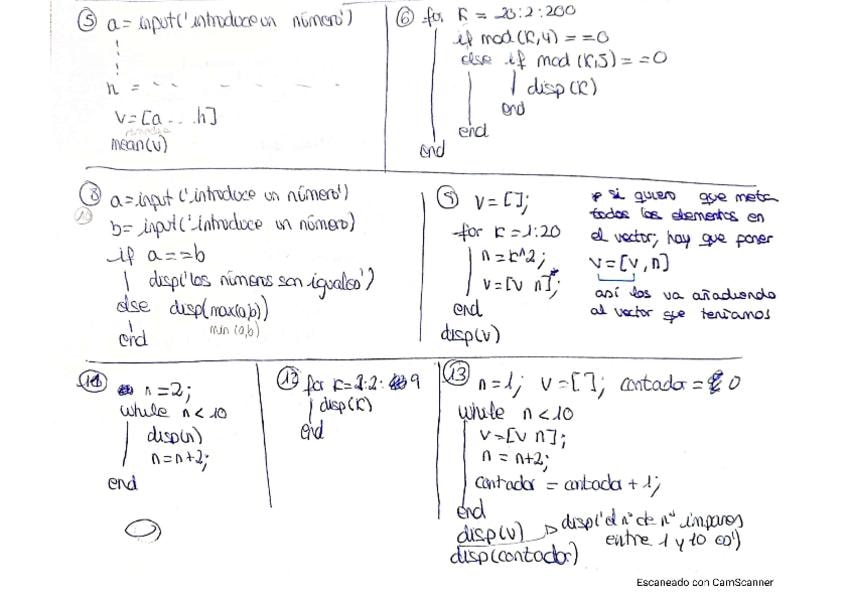 5 a = input('introduce un número')
n = - - - - -
v = [a . . . h]
mean(v)
6 for k = 20:2:200
if mod(k,4) = =0
else if mod (k,5) = =0
disp(k)
end
end
end
8 a=input ('introduce un número')
10 b= input('introduce un número)
if a==b
disp('los números son iguales')
else disp(max(a,b))
min(a,b)
end
9 v = [];
for k=1:20
n=k^2;
v=[v n];*
end
disp(v)
* si quiero que meta
todos los elementos en
el vector, hay que poner
v=[v,n]
así los va añadiendo
al vector que teníamos
11 n=2;
while n<10
disp(n)
n=n+2;
end
12 for k=1:2:9
disp(k)
end
13 n=1; v=[]; contador = 0
while n<10
v=[v n];
n = n+2;
contador = contador + 1;
end
disp(v)
disp('el nº de nº impares
entre 1 y 10 es')
disp(contador)
Escaneado con CamScanner